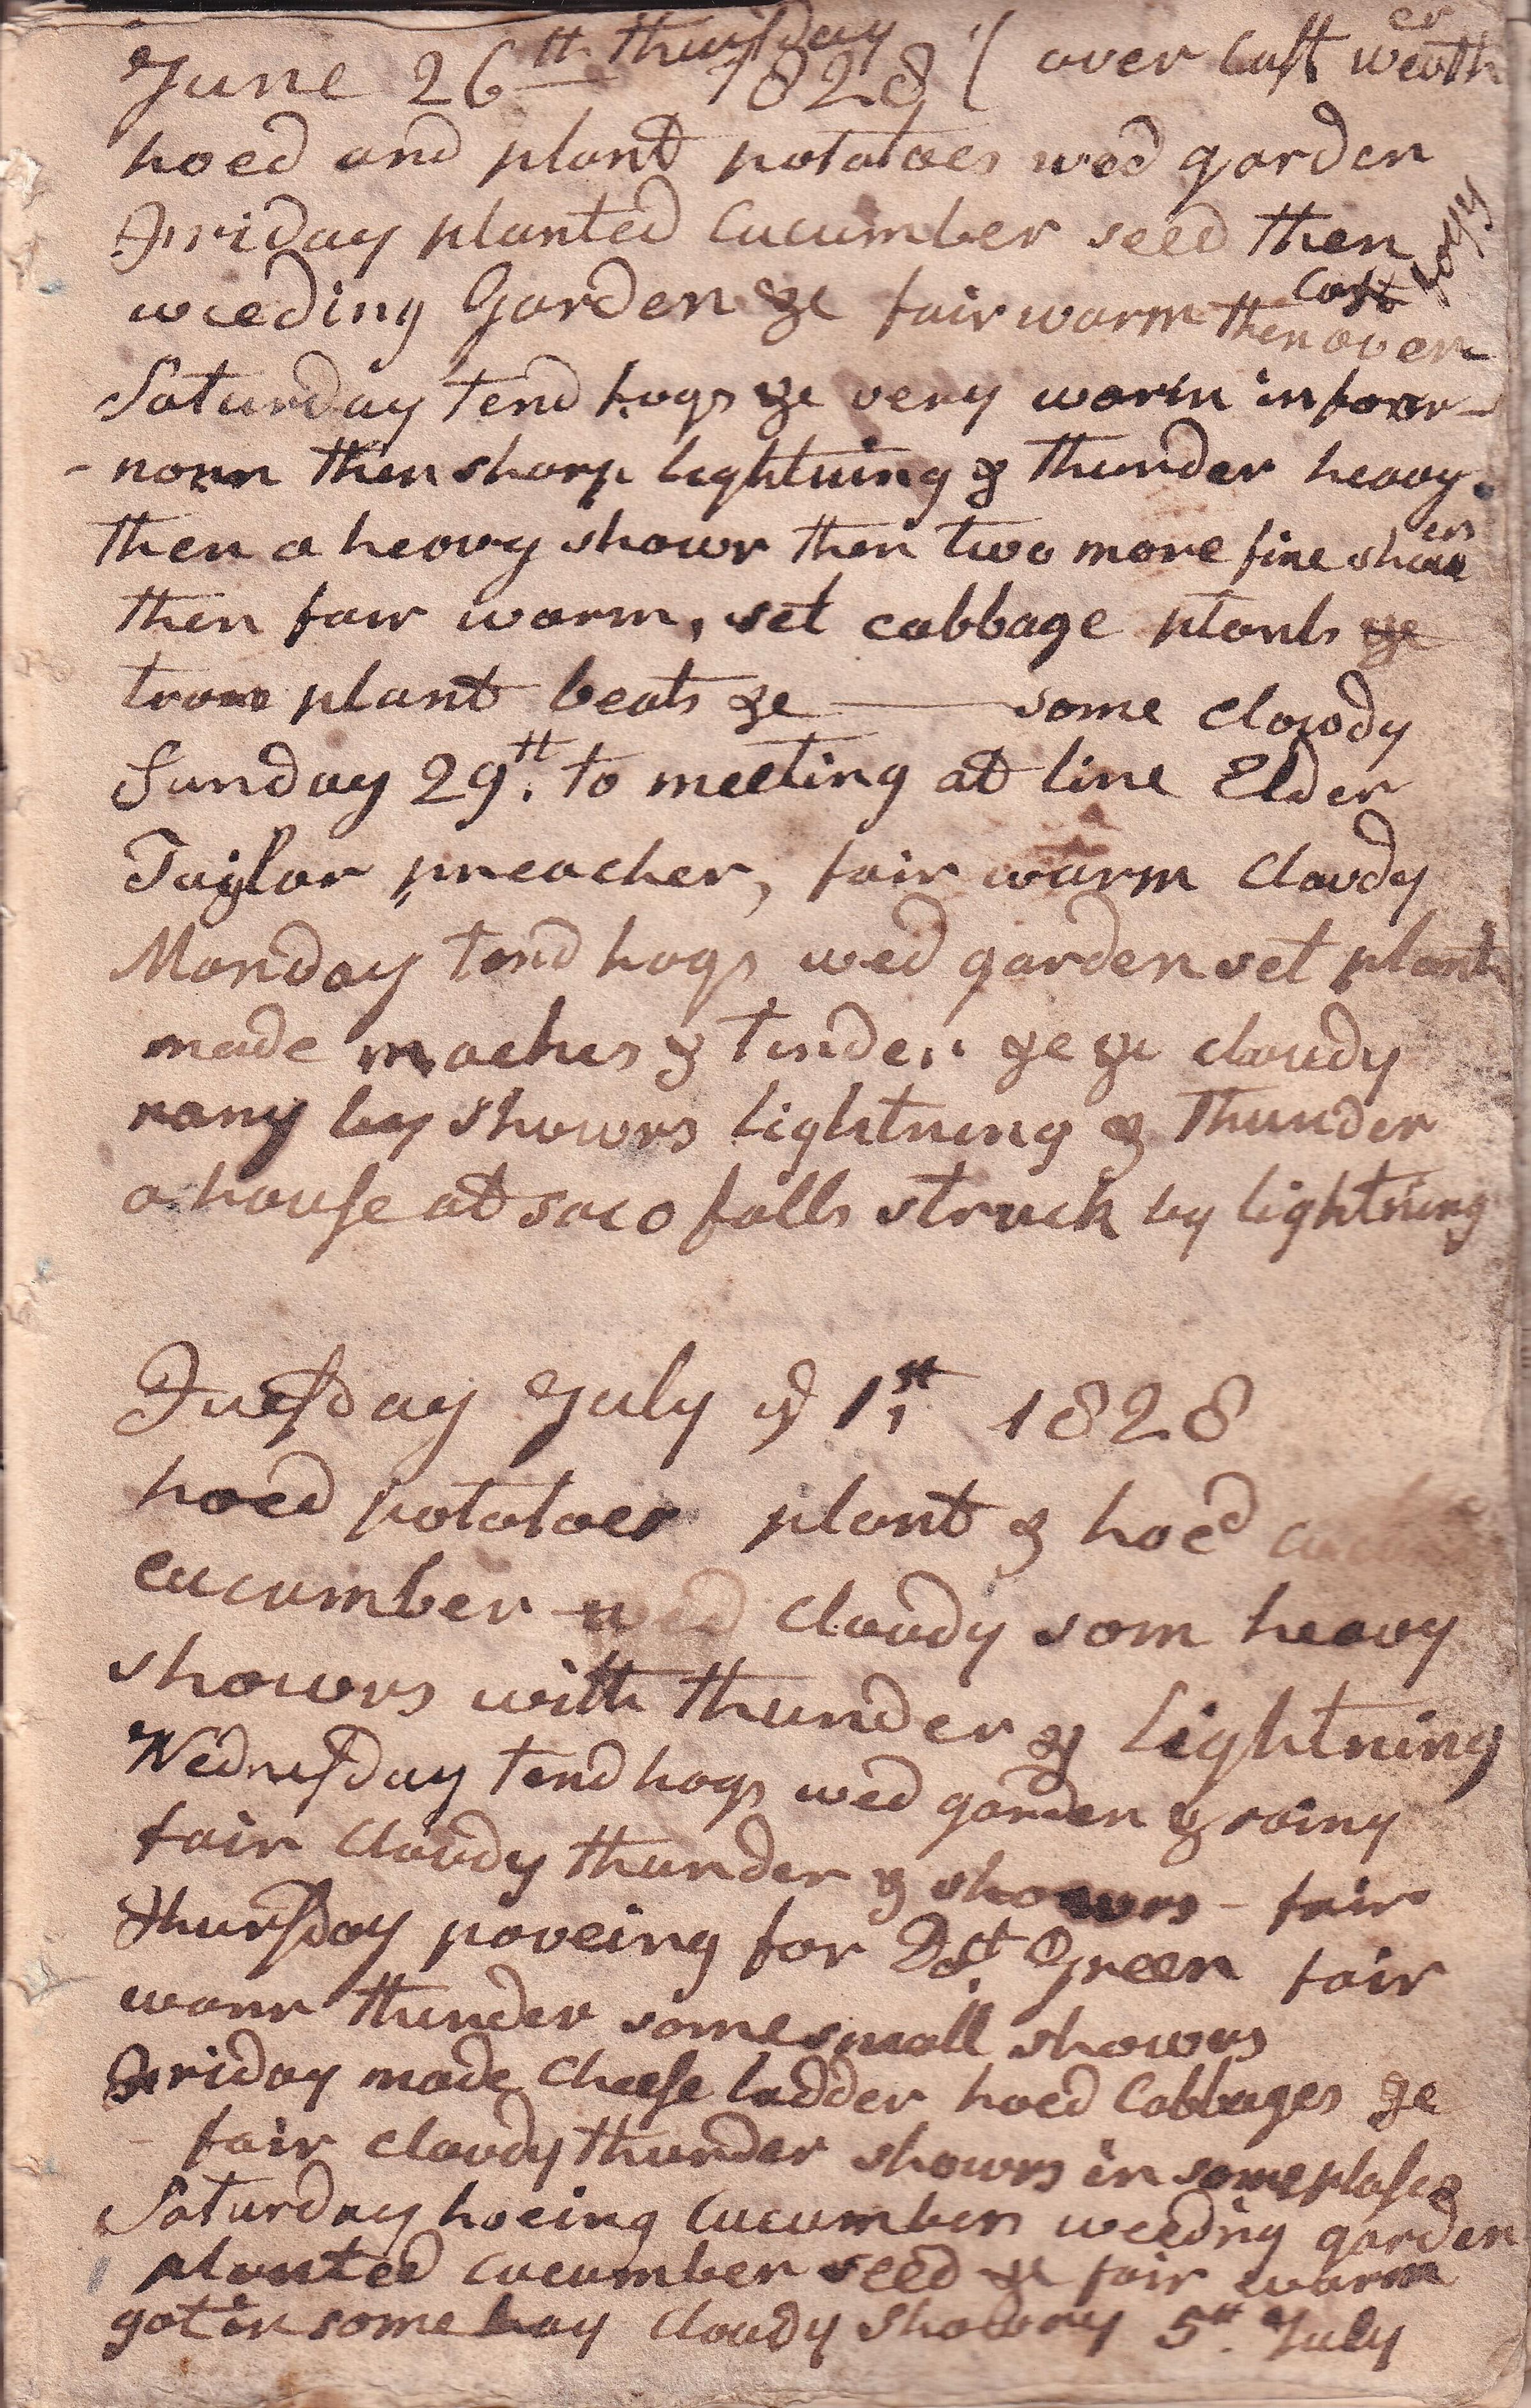 June 26th thursday 1828 ( over Cast weather
hoed and plant potatoes wed garden
Friday planted Cucumber seed then
weeding Garden &c fair warm then over Cast fogy
Saturday tend hogs &c very warm in foor-
-noon then sharp lightning & thunder heavy.
then a heavy showr then two more fine showers
then fair warm, set cabbage plants &c
trans plant beats &c — some clowdy
Sunday 29th. to meeting at line Elder
Taylor preacher, fair warm Cloudy
Monday tend hogs wed garden set plants
made maches & tinder &c &c cloudy
rany by showrs lightning & thunder
a house at saco falls struck by lightning
Tuesday July ye 1st, 1828
hoed potatoes plant & hoed
cucumber wed Cloudy som heavy
showrs with thunder & lightning
Wednesday tend hogs wed garden & rainy
fair Cloudy thunder & showrs - fair
thursday paveing for Dst. Green fair
warm thunder some small showrs
Friday made Cheese ladder hoed Cabbages &c
- fair cloudy thunder showrs in some plases
Saturday hoeing Cucumbers weeding garden
planted cucumber seed &c fair warm
got in some hay cloudy showry 5th. July